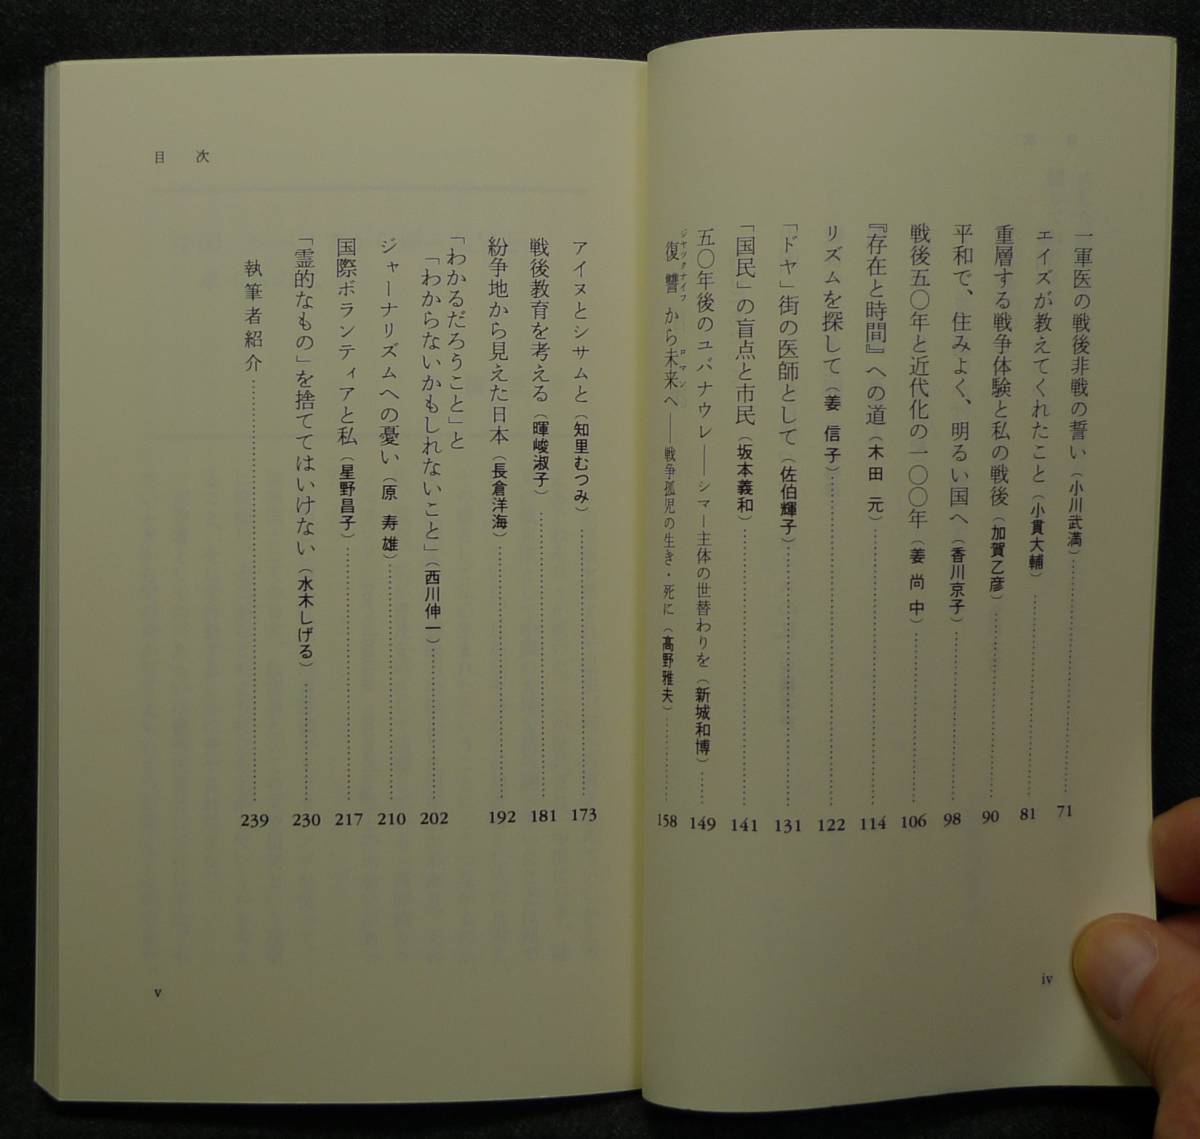 一軍医の戦後非戦の誓い（小川武満）……………………71
エイズが教えてくれたこと（小貫大輔）……………………81
重層する戦争体験と私の戦後（加賀乙彦）……………………90
平和で、住みよく、明るい国へ（香川京子）……………………98
戦後五〇年と近代化の一〇〇年（姜 尚 中）……………………106
『存在と時間』への道（木田 元）……………………114
リズムを探して（姜 信子）……………………122
「ドヤ」街の医師として（佐伯輝子）……………………131
「国民」の盲点と市民（坂本義和）……………………141
五〇年後のユバナウレ――シマー主体の世替わりを（新城和博）……149
ジャックナイフ ロマン
復讐から未来へ――戦争孤児の生き・死に（髙野雅夫）…………158
iv
目 次
アイヌとシサムと（知里むつみ）……………………173
戦後教育を考える（暉峻淑子）……………………181
紛争地から見えた日本（長倉洋海）……………………192
「わかるだろうこと」と
「わからないかもしれないこと」（西川伸一）……………………202
ジャーナリズムへの憂い（原 寿雄）……………………210
国際ボランティアと私（星野昌子）……………………217
「霊的なもの」を捨ててはいけない（水木しげる）……………………230
執筆者紹介……………………239
v